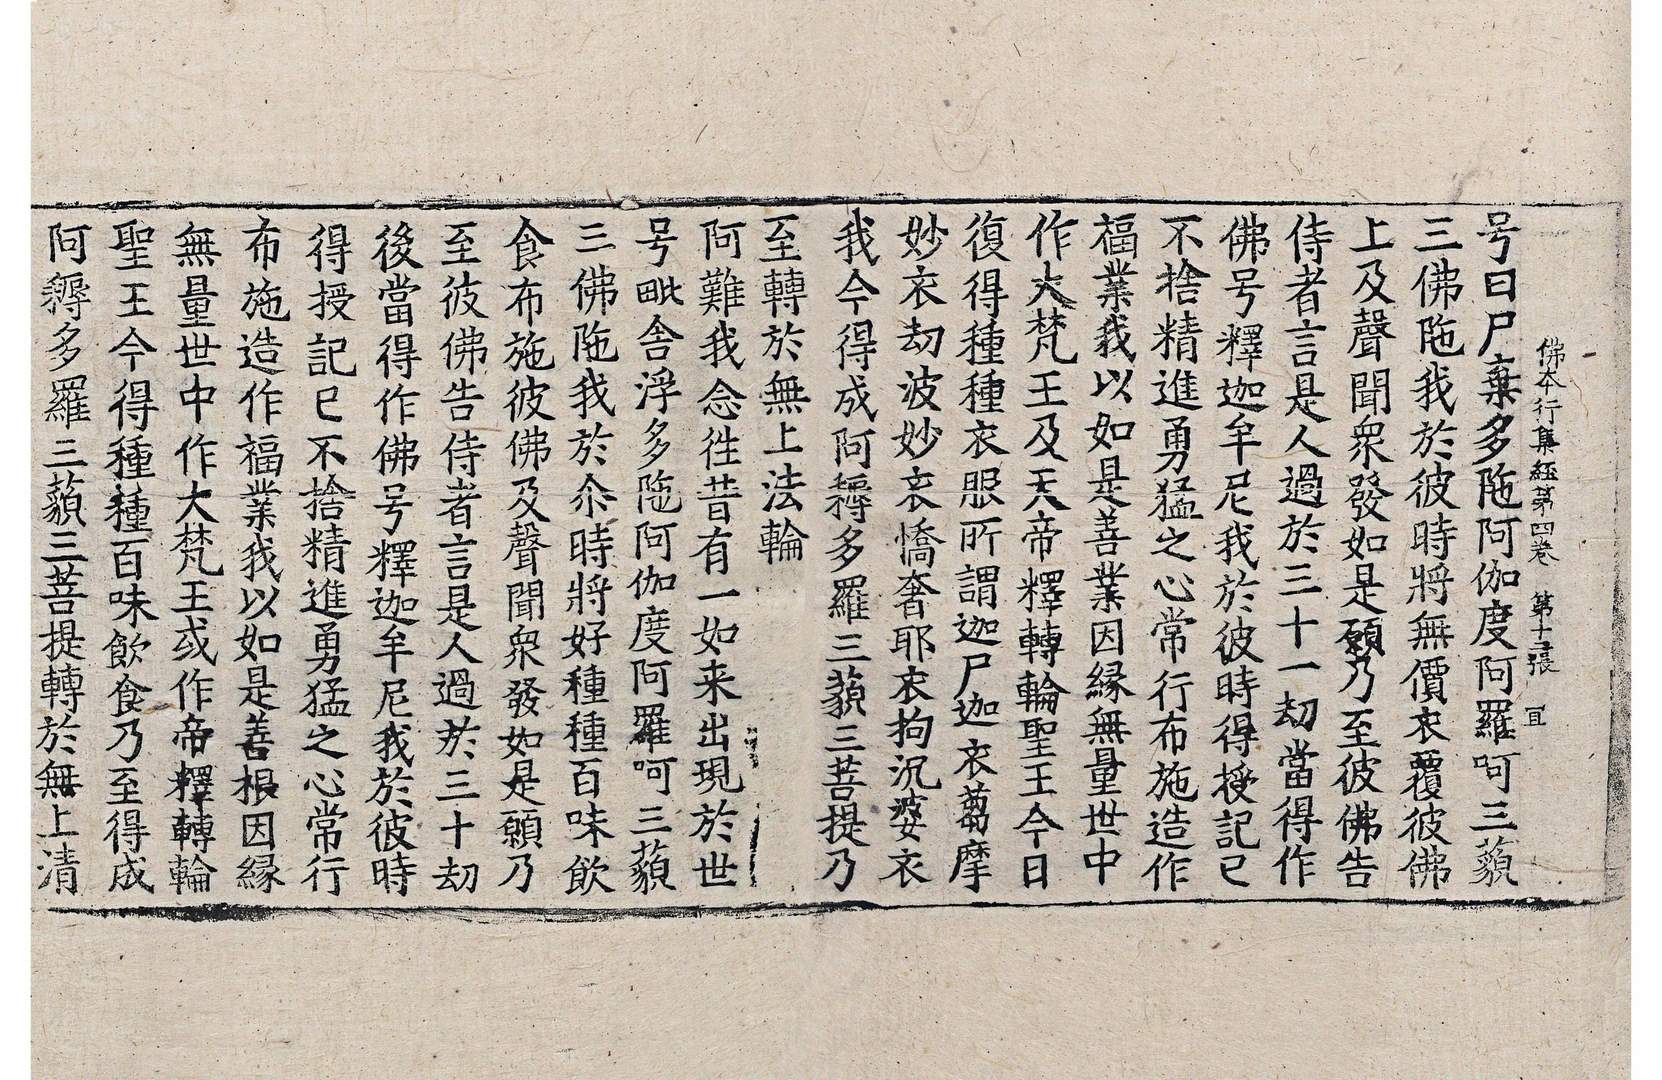 佛本行集經第四卷 第十二張 冝
号曰尸棄多陁阿伽度阿羅呵三藐
三佛陁我於彼時將無價衣覆彼佛
上及聲聞衆發如是願乃至彼佛告
侍者言是人過於三十一劫當得作
佛号釋迦牟尼我於彼時得授記已
不捨精進勇猛之心常行布施造作
福業我以如是善業因緣無量世中
作大梵王及天帝釋轉輪聖王今日
復得種種衣服所謂迦尸迦衣蒭摩
妙衣劫波妙衣憍奢耶衣拘沉婆衣
我今得成阿耨多羅三藐三菩提乃
至轉於無上法輪
阿難我念徃昔有一如来出現於世
号毗舍浮多陁阿伽度阿羅呵三藐
三佛陁我於尒時將好種種百味飲
食布施彼佛及聲聞衆發如是願乃
至彼佛告侍者言是人過於三十劫
後當得作佛号釋迦牟尼我於彼時
得授記已不捨精進勇猛之心常行
布施造作福業我以如是善根因緣
無量世中作大梵王或作帝釋轉輪
聖王今得種種百味飲食乃至得成
阿耨多羅三藐三菩提轉於無上清